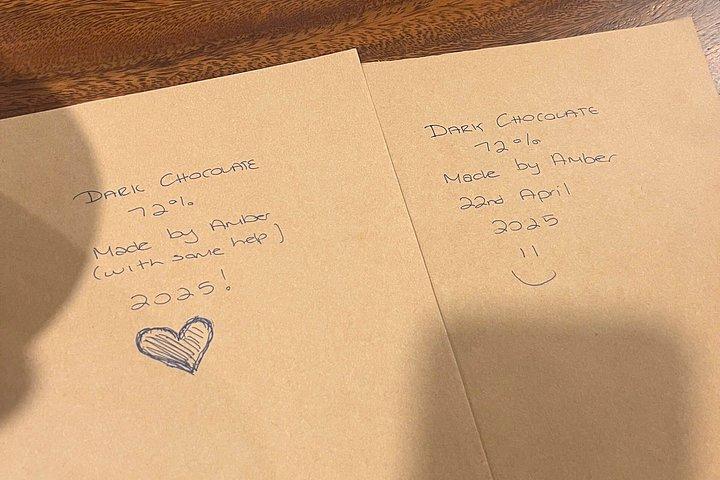 DARK CHOCOLATE
72%
Made by Amber
(with some help)
2025!
DARK CHOCOLATE
72%
Made by Amber
22nd April
2025